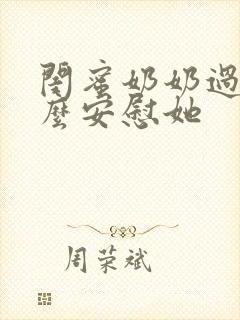 閨蜜奶奶過
麼安慰她
周荣斌